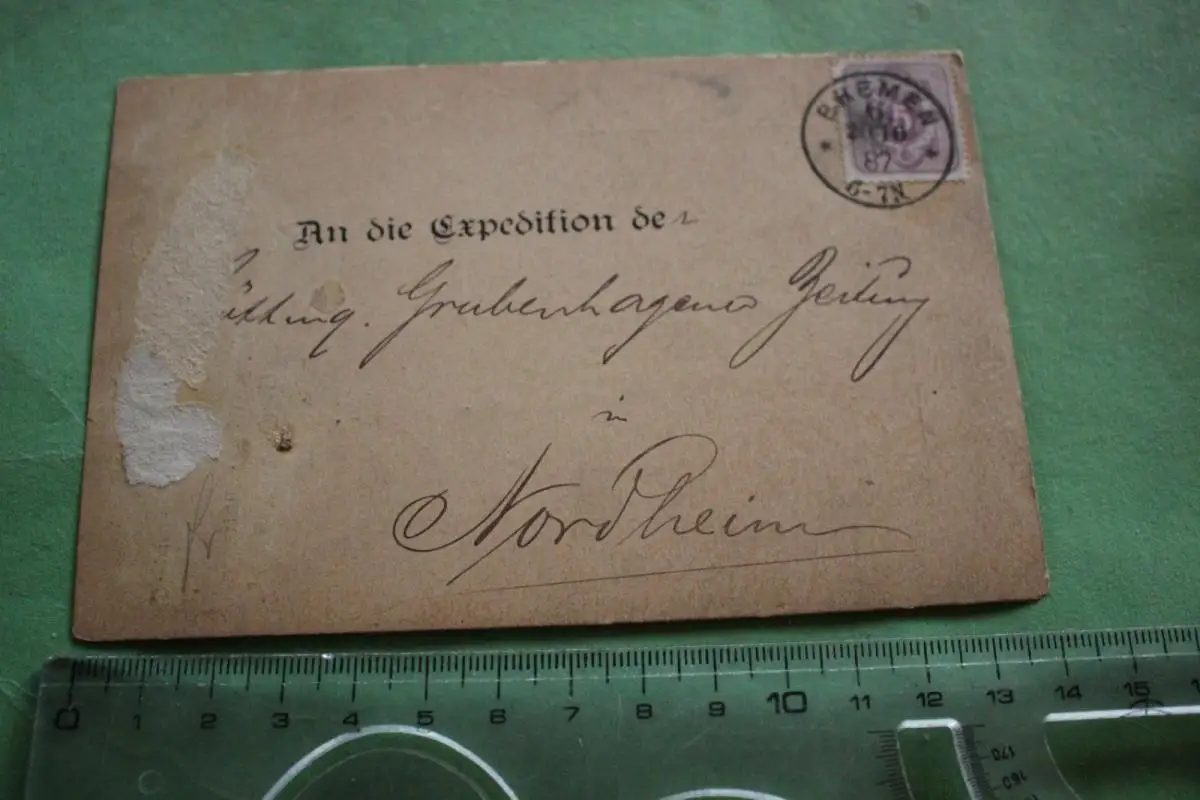 BREMEN
87
6-7N
An die Expedition der
Götting. Grubenhagener Zeitung
in
Nordheim
fr
0 1 2 3 4 5 6 7 8 9 10 11 12 13 14 15
170
160